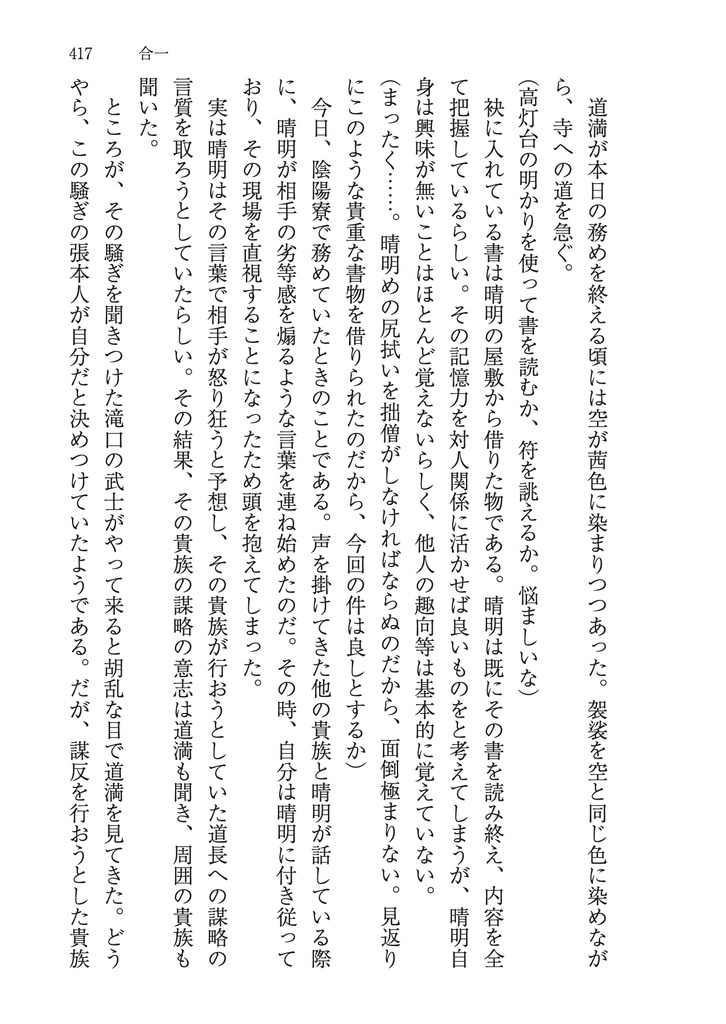 417 合一
　道満が本日の務めを終える頃には空が茜色に染まりつつあった。袈裟を空と同じ色に染めなが
ら、寺への道を急ぐ。
（高灯台の明かりを使って書を読むか、符を誂えるか。悩ましいな）
　袂に入れている書は晴明の屋敷から借りた物である。晴明は既にその書を読み終え、内容を全
て把握しているらしい。その記憶力を対人関係に活かせば良いものをと考えてしまうが、晴明自
身は興味が無いことはほとんど覚えないらしく、他人の趣向等は基本的に覚えていない。
（まったく……。晴明めの尻拭いを拙僧がしなければならぬのだから、面倒極まりない。見返り
にこのような貴重な書物を借りられたのだから、今回の件は良しとするか）
　今日、陰陽寮で務めていたときのことである。声を掛けてきた他の貴族と晴明が話している際
に、晴明が相手の劣等感を煽るような言葉を連ね始めたのだ。その時、自分は晴明に付き従って
おり、その現場を直視することになったため頭を抱えてしまった。
　実は晴明はその言葉で相手が怒り狂うと予想し、その貴族が行おうとしていた道長への謀略の
言質を取ろうとしていたらしい。その結果、その貴族の謀略の意志は道満も聞き、周囲の貴族も
聞いた。
　ところが、その騒ぎを聞きつけた滝口の武士がやって来ると胡乱な目で道満を見てきた。どう
やら、この騒ぎの張本人が自分だと決めつけていたようである。だが、謀反を行おうとした貴族